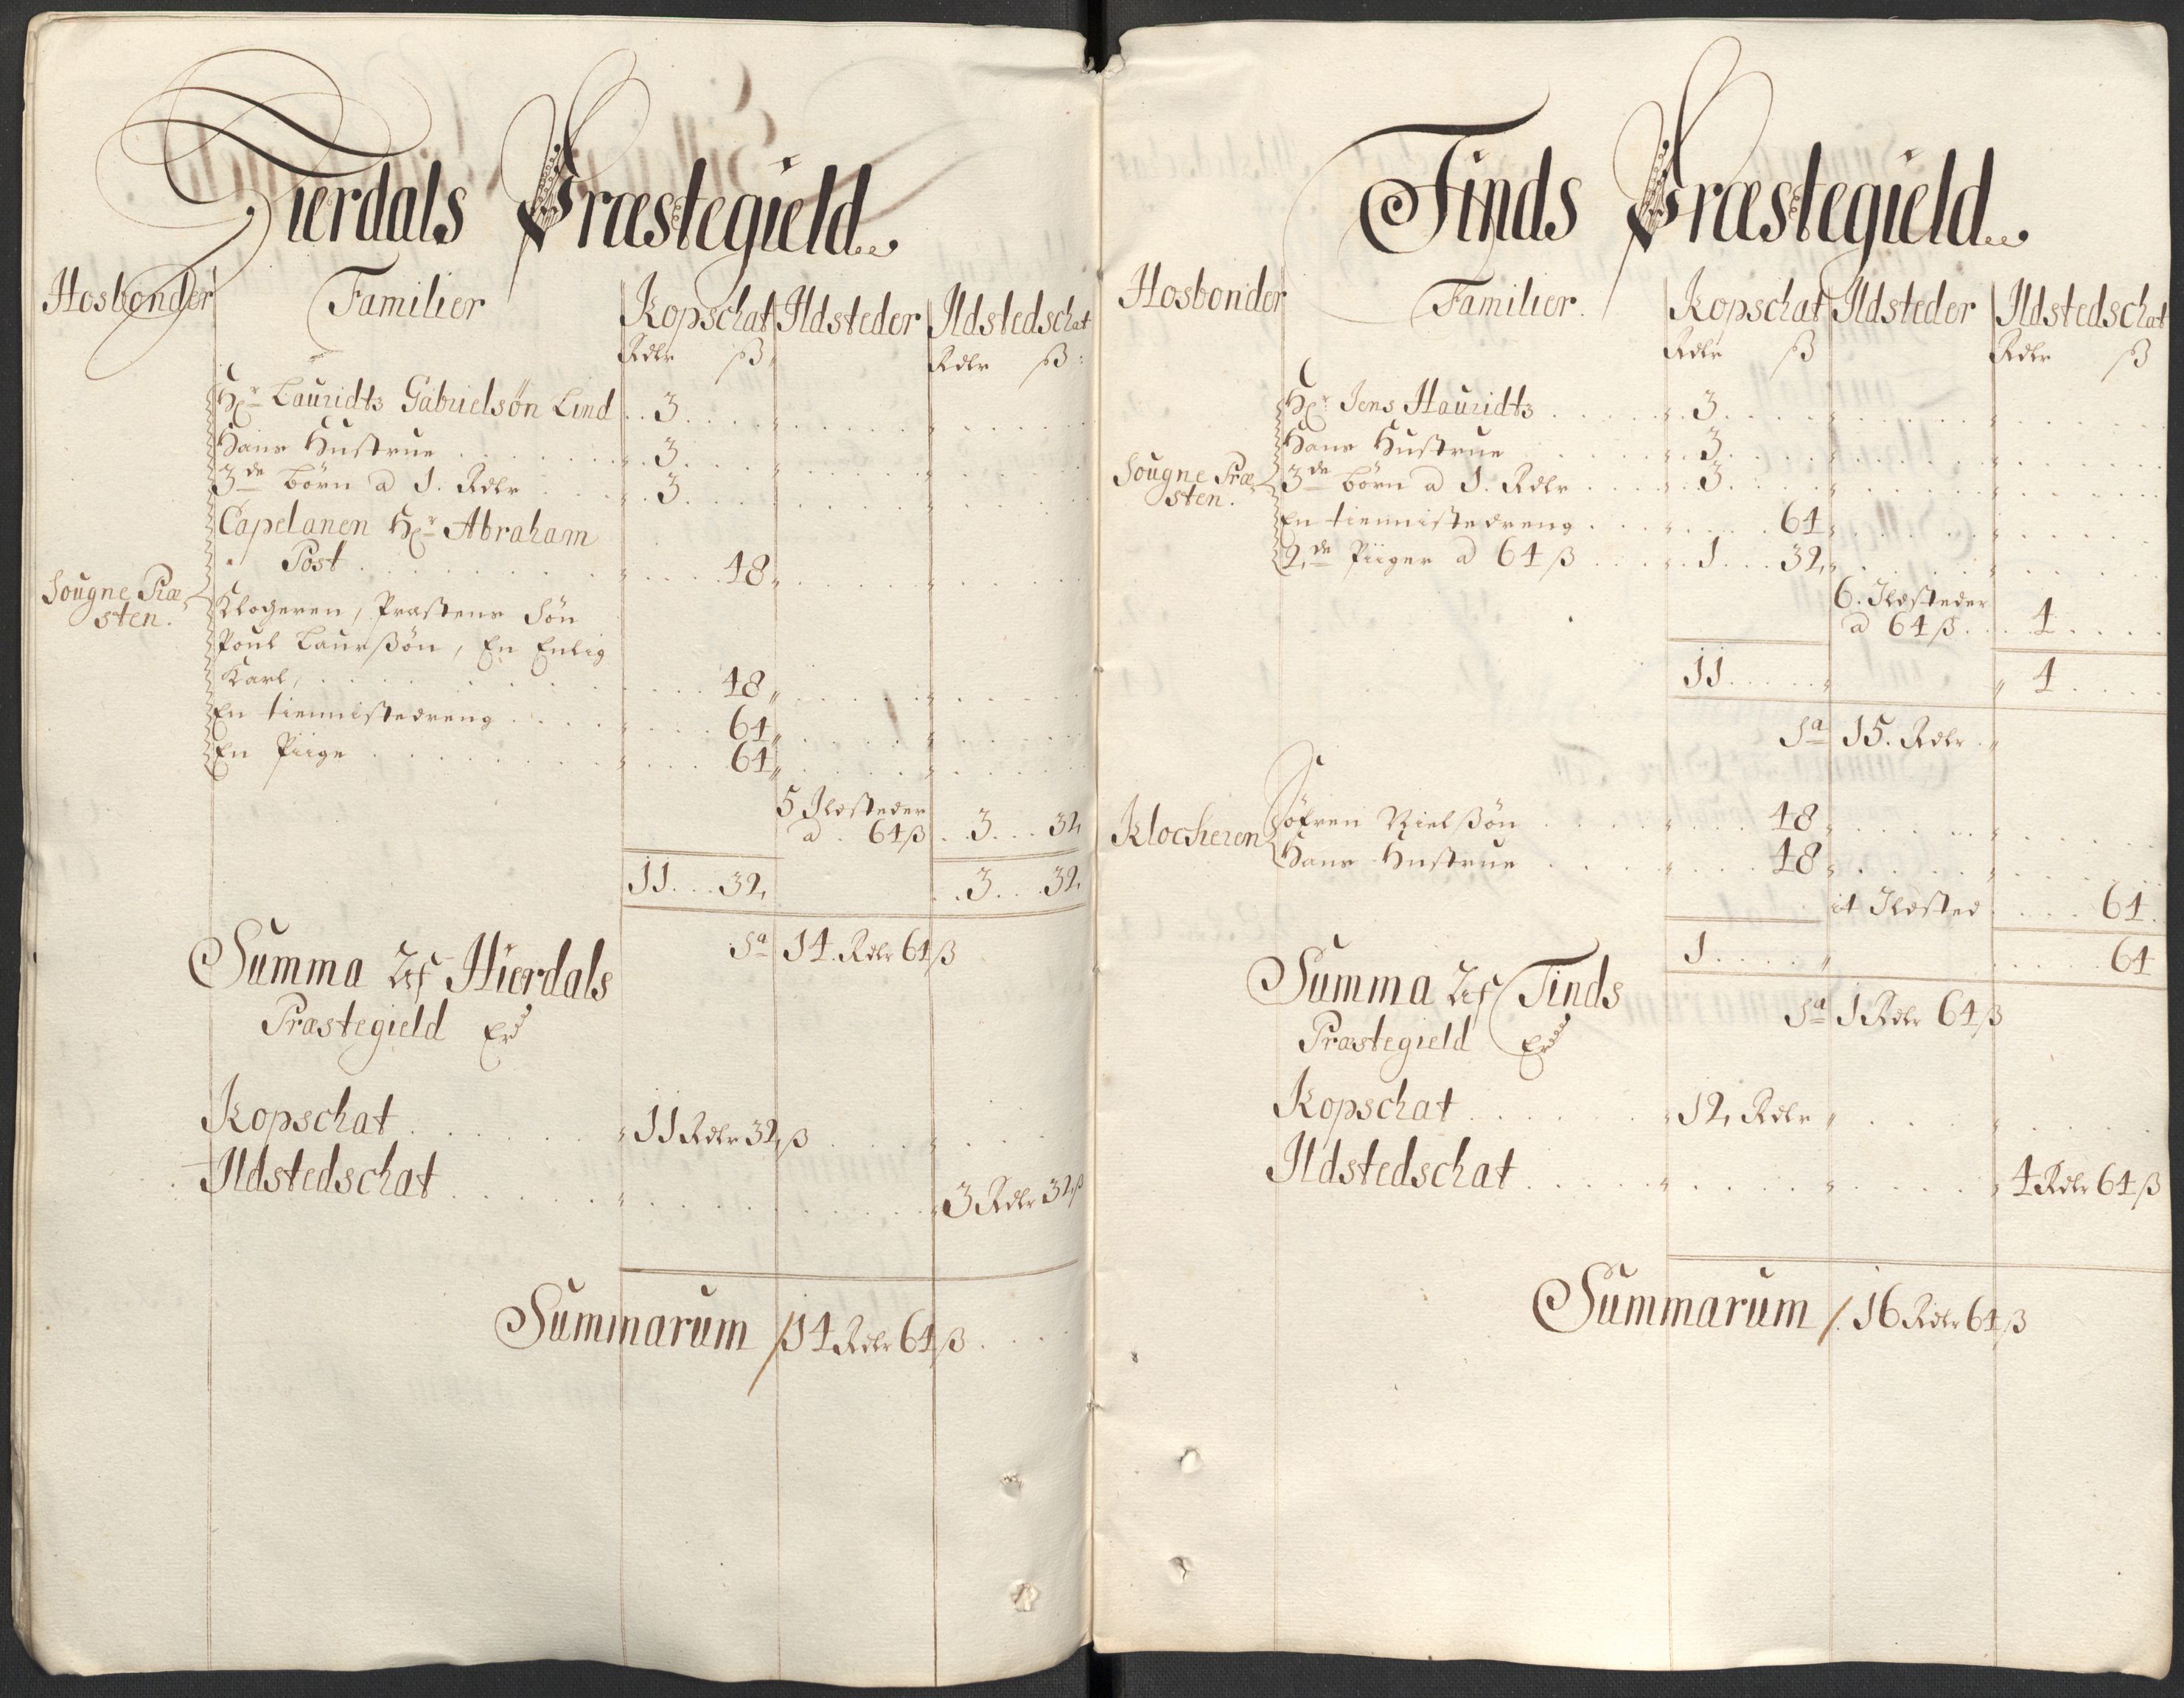 Hierdals Præstegield
Hosbonder Familier Kopschat Ildsteder Ildstedschat
Rdlr ß Rdlr ß
Hr Lauridts Gabrielsön Lind 3
Hans Hustrue 3
3de Börn a 1. Rdlr 3
Capelanen Hr Abraham
Post 48
Sougne Præ-
sten.
Klocheren, Præstens Sön
Poul Laurßön, En Enlig
Karl, 48
En tiennistedreng 64
En Piige 64
5 Ildsteder
a 64 ß 3 32
11 32 3 32
Sa 14 Rdlr 64 ß
Summa Af Hierdals
Præstegield Er
Kopschat 11 Rdlr 32 ß
Ildstedschat 3 Rdlr 32 ß
Summarum 14 Rdlr 64 ß
Tinds Præstegield
Hosbonder Familier Kopschat Ildsteder Ildstedschat
Rdlr ß Rdlr ß
Hr Jens Lauridts 3
Hans Hustrue 3
Sougne Præ-
sten.
3de Börn a 1. Rdlr 3
En tiennistedreng 64
2de Piiger a 64 ß 1 32
6. Ildsteder
a 64 ß 4
11 4
Sa 15. Rdlr
Klocheren Söfren Nielßön 48
Hans Hustrue 48
it Ildsted 64
1 64
Sa 1 Rdlr 64 ß
Summa Af Tinds
Præstegield Er
Kopschat 12 Rdlr
Ildstedschat 4 Rdlr 64 ß
Summarum 16 Rdlr 64 ß